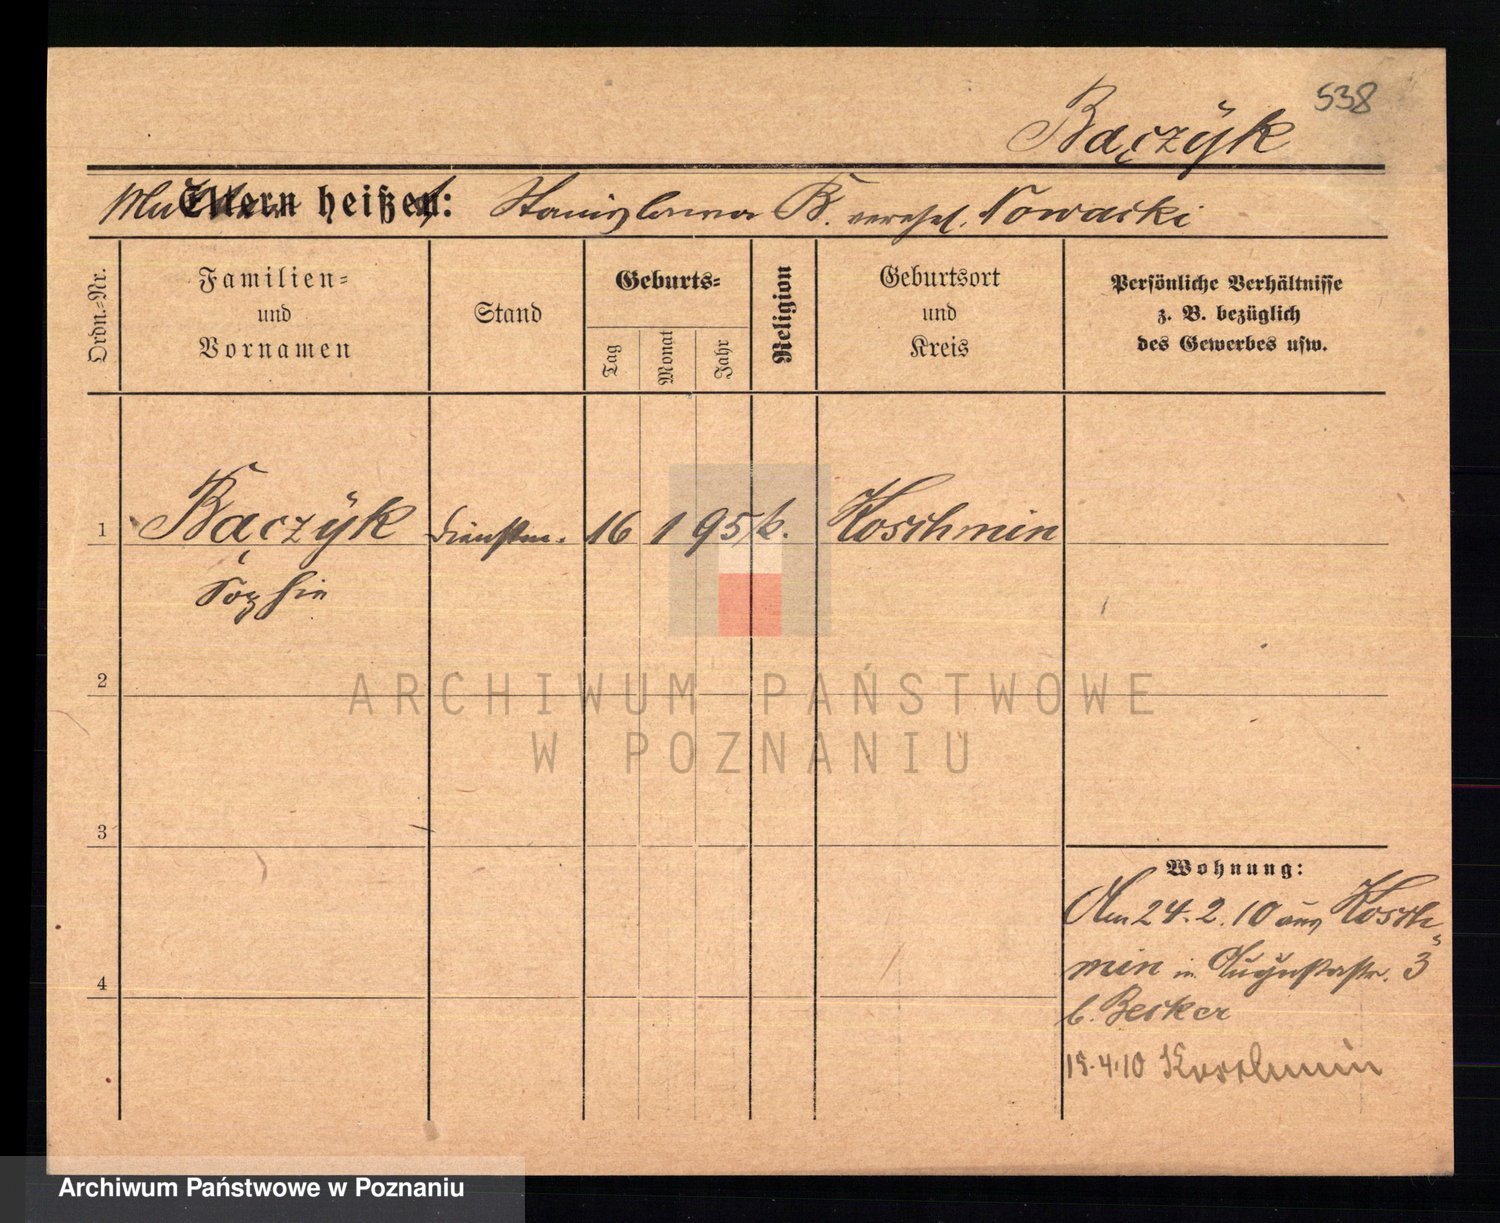 538
Bączÿk
Mutter Eltern heißen: Stanislawa B. verehel. Nowacki
Ordn.-Nr.
Familien-
und
Vornamen
Stand
Geburts-
Tag
Monat
Jahr
Religion
Geburtsort
und
Kreis
Persönliche Verhältnisse
z. B. bezüglich
des Gewerbes usw.
1 Bączÿk Dienstm. 16 1 95 k. Koschmin
Sophie
2
ARCHIWUM PAŃSTWOWE
W POZNANIU
3
Wohnung:
Am 24.2.10 aus Kosch-
min in Augustastr. 3
b. Becker
4
4.10 Koschmin
Archiwum Państwowe w Poznaniu